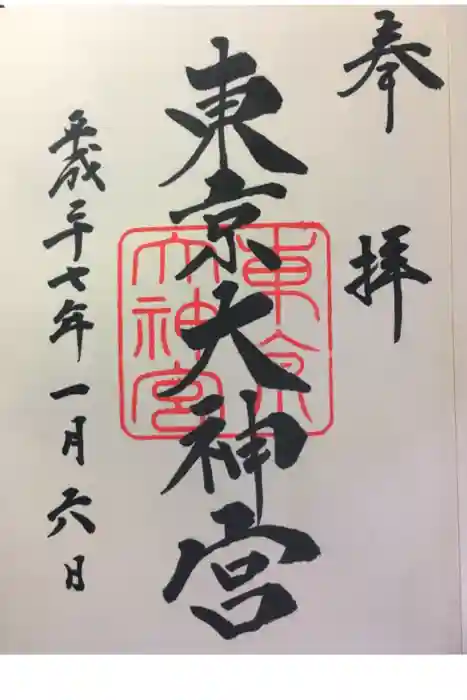 奉拝
東京大神宮
東京大神宮
平成二十七年一月六日